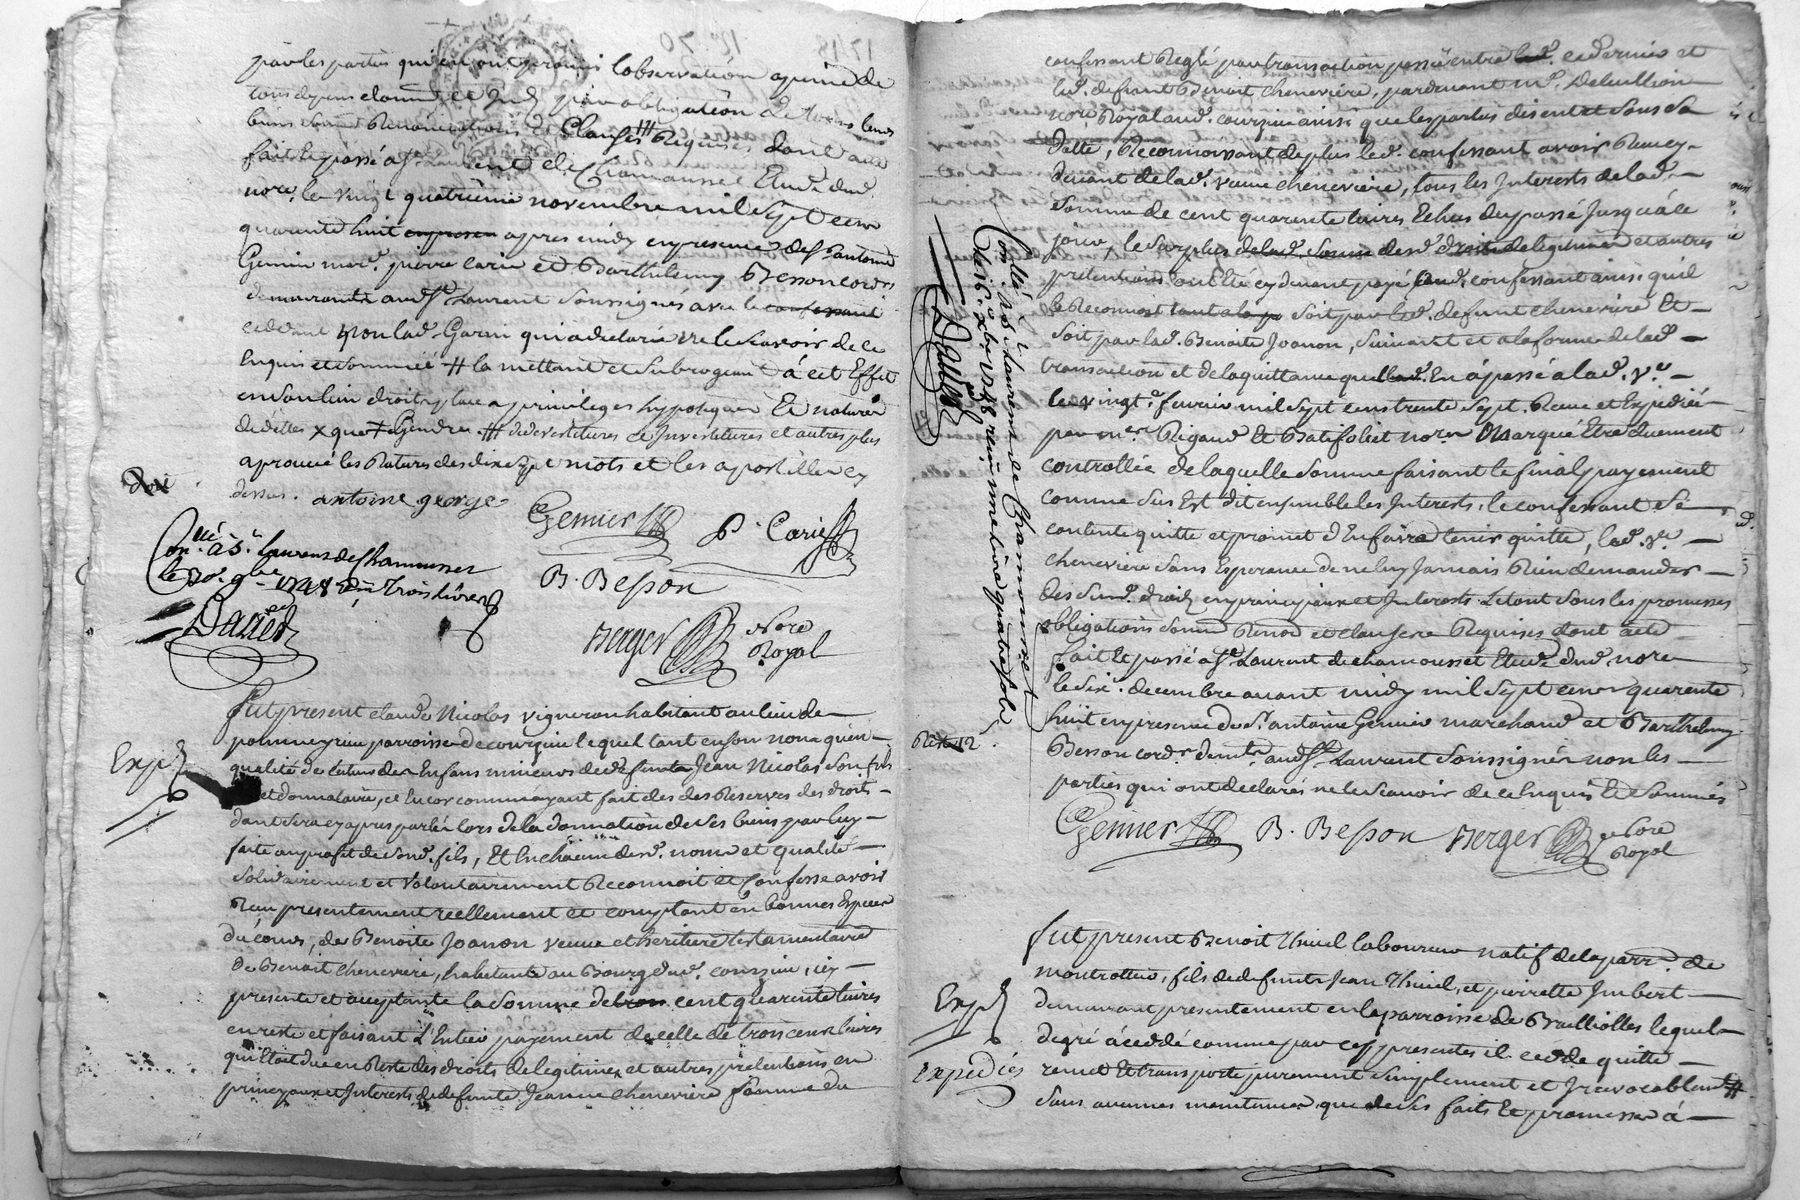 par les parties qui en ont promis l'observation a peine de
tous depens dom. et Jud. par obligation de tous leurs
biens Renonciations et Clauses Requises dont acte
fait et passé a St. Laurent de Chamousset Etude dud.
nore. le vingt quatrieme novembre mil sept cent
quarante huit apres midy en presence de Sr. antoine
Genier mar.d pierre Carie et Barthelemy Besson cord.rs
demeurants aud. St. Laurent Soussignés avec le confessant
non lad. Garin qui a declaré ne le scavoir de ce
Enquis et sommée # la mettant et subrogeant à cet Effet
en son lieu droits place privileges hypoteques Et nature
de dettes # de devestitures et Investitures et autres plus
aprouvé les Ratures des dix sept mots et les apostilles cy
dessus. antoine george
Genier P. Carie
B. Besson
Berger Nore Royal
Con.llé à St. Laurens de Chamousset
le 30. 9bre 1748 Trois livres
Daniel
fut present claude Nicolas vigneron habitant au lieu de
parroisse de courzieu lequel tant en son nom qu'en
qualité de tuteur des Enfans mineurs de defunt Jean Nicolas Son fils
et donnataire, et Encor comme ayant fait des Reserves des droits
dont sera cy apres parlé lors de la donnation de ses biens par luy
faite au profit de son d. fils, Et En chacun desd. noms et qualité
solidairement et volontairement Reconnoit et Confesse avoir
Reçu presentement reellement et comptant en bonnes Especes
du cours, de Benoite Joanon veuve et heritiere testamentaire
de Benoit Cheneviere, habitante au Bourg dud. courzieu, icy
presente et acceptante la somme de cent quarante livres
en reste et faisant l'Entier payement de celle de trois cent livres
qui Etoit due en Reste des droits de legitime et autres pretentions en
principaux et Interests de defunte Jeanne cheneviere femme du
Exp.d
confessant Reglé par transaction passée entre ce dernier et
led. defunt Benoit Cheneviere, pardevant Me. Delaullion
nore. Royal aud. courzieu ainsi que les parties disent et sous sa
datte, Reconnoissant de plus led. confessant avoir Reçu cy
devant de lad. veuve cheneviere, tous les Interests de lad.
somme de cent quarante livres Echus du passé Jusqu'à ce
jour, le surplus desd. droits de legitime et autres
pretentions ont Eté cy devant payé aud. confessant ainsi qu'il
le Reconnoit soit par led. defunt cheneviere Et
soit par lad. Benoite Joanon, Suivant et a la forme de lad.
transaction et de la quittance qu'il En à passé à lad. ve.
le vingt fevrier mil sept cens trente sept. Reçue et Expediée
par Me. Rigaud Et Batifoliet nores. Etre duement
controllée de laquelle somme faisant le final payement
comme sus Est dit ensemble les Interests, le confessant se
contente quitte et promet d'En faire tenir quitte, lad. ve.
cheneviere sans Esperance de ne luy Jamais Rien demander
desd. droits en principaux et Interests Letout sous les promesses
obligations soum. Renon et clauses Requises dont acte
fait Et passé a St. Laurent de chamousset Etude dud. nore
le six. decembre avant midy mil sept cent quarante
huit en presence de Sr. antoine Genier marchand et Barthelemy
Besson cord.r dem.ts aud. St. Laurent Soussignés non les
parties qui ont declarés ne le scavoir de ce Enquis Et sommés
Genier B. Besson Berger Nore Royal
Con.llé à St. Laurent de Chamousset
le 16. Xbre 1748 reçu une livre quatre sols
Daniel
fut present Benoit Thiuel laboureur natif de la parr. de
montrottier, fils de defunts Jean Thiuel, et pierrette Imbert
demeurant presentement en la parroisse de Brulliolles lequel
degré à ceddé comme par ces presentes il cedde quitte
remet Et transporte purement simplement et Irrevocablement #
sans aucunes maintenues que de ses faits Et promesses à
Exp.d
expediés